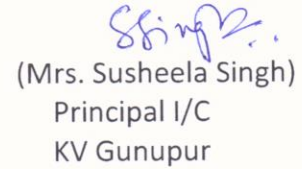 SSingh..
(Mrs. Susheela Singh)
Principal I/C
KV Gunupur